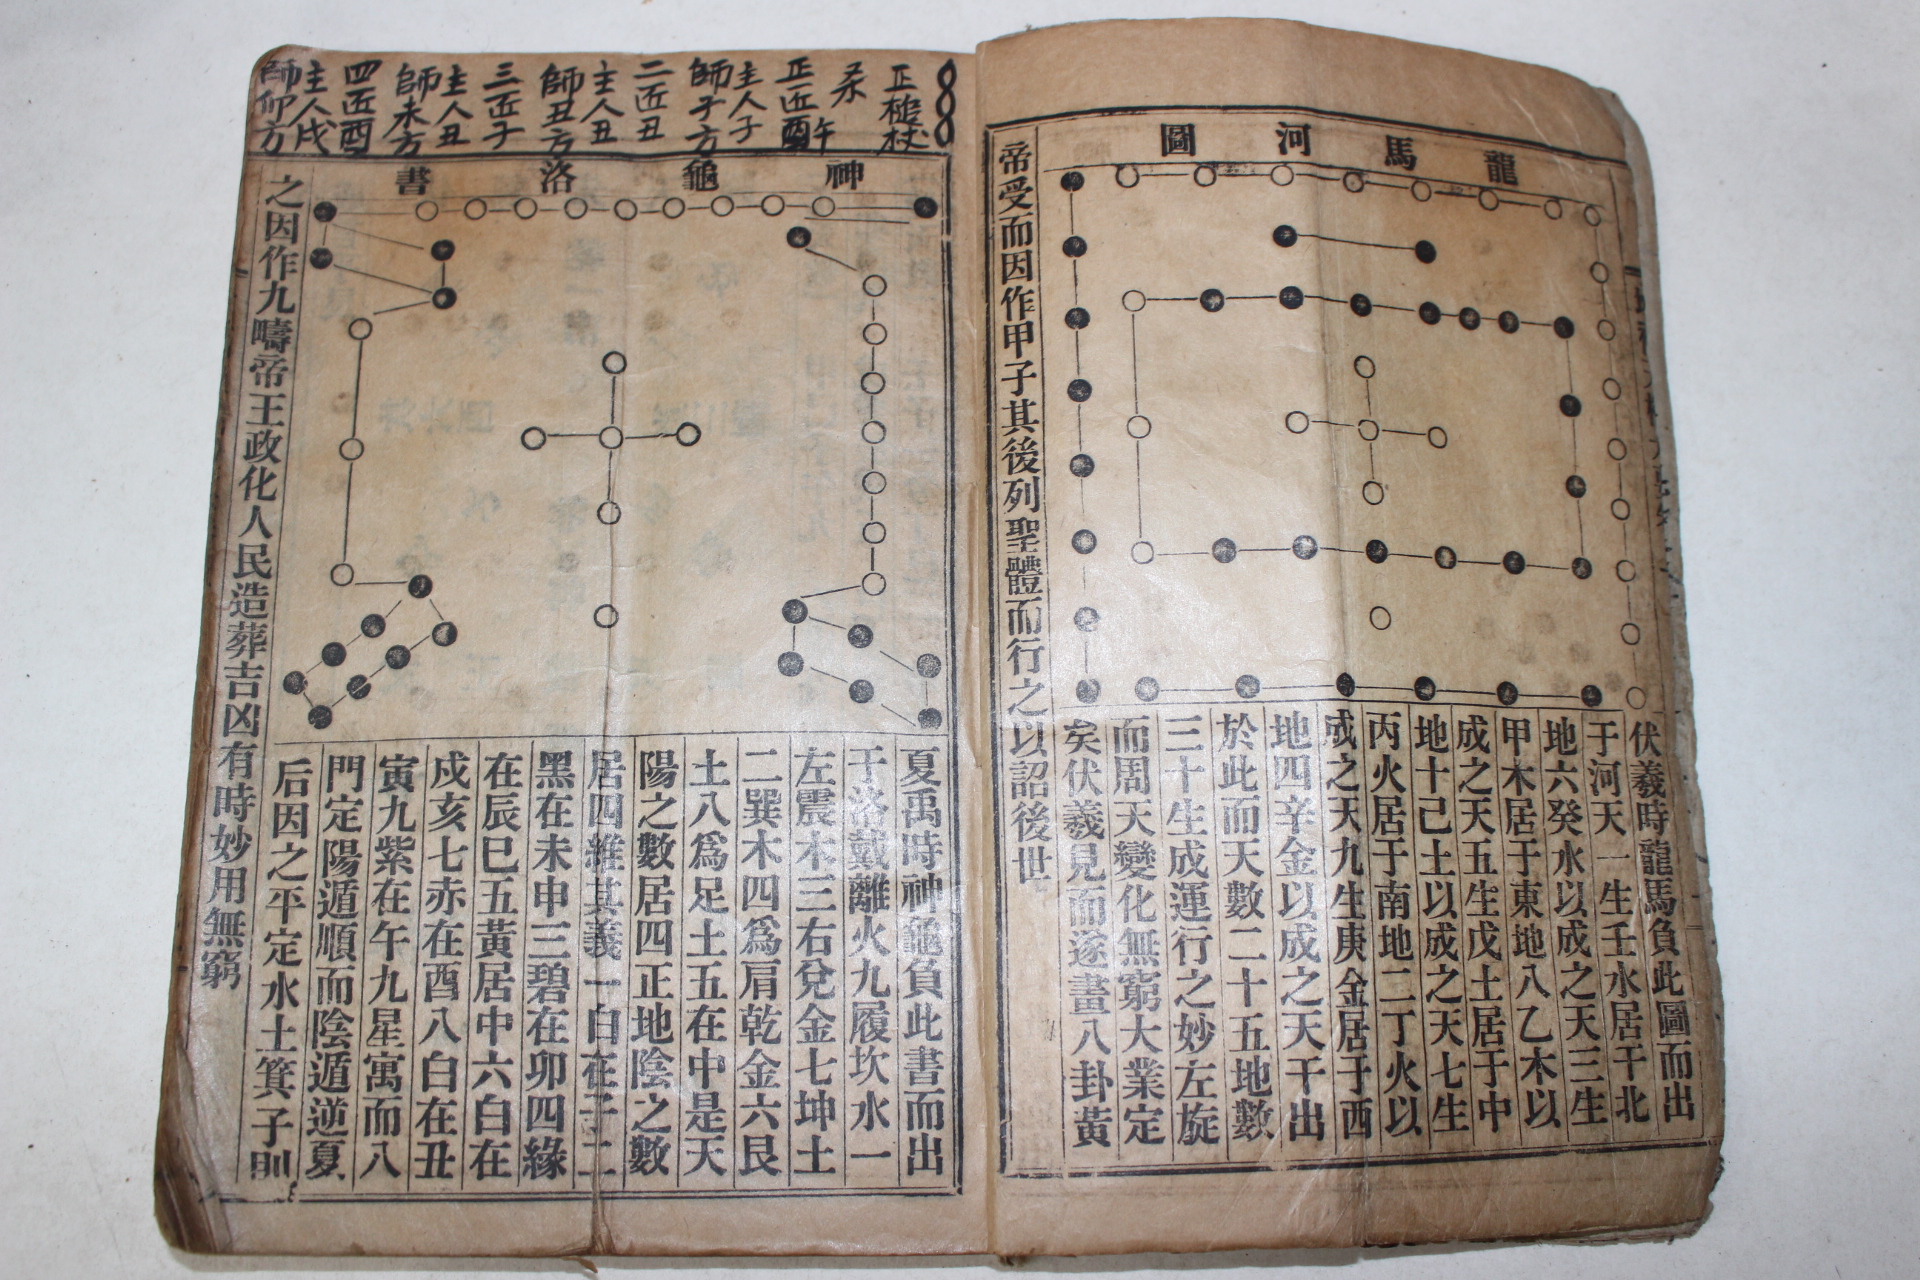 龍馬河圖
伏羲時龍馬負此圖而出
于河天一生壬水居于北
地六癸水以成之天三生
甲木居于東地八乙木以
成之天五生戊土居于中
地十己土以成之天七生
丙火居于南地二丁火以
成之天九生庚金居于西
地四辛金以成之天干出
於此而天數二十五地數
三十生成運行之妙左旋
而周天變化無窮大業定
矣伏羲見而遂畫八卦黃
帝受而因作甲子其後列聖體而行之以詔後世
正槌杖
午
正近酉
主人子
師子方
二近丑
主人丑
師丑方
三近子
主人丑
師未方
四近酉
主人戌
師卯方
神龜洛書
夏禹時神龜負此書而出
于洛戴離火九履坎水一
左震木三右兌金七坤土
二巽木四爲肩乾金六艮
土八爲足土五在中是天
陽之數居四正地陰之數
居四維其義一白在子二
黑在未申三碧在卯四緣
在辰巳五黃居中六白在
戌亥七赤在酉八白在丑
寅九紫在午九星寓而八
門定陽遁順而陰遁逆夏
后因之平定水土箕子則
之因作九疇帝王政化人民造葬吉凶有時妙用無窮